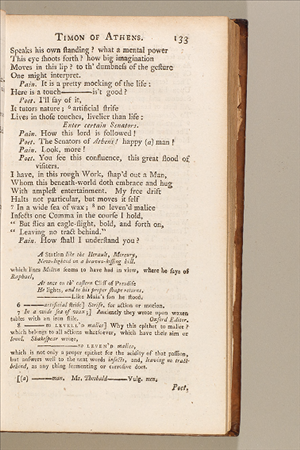 TIMON OF ATHENS. 133
Speaks his own ſtanding? what a mental power
This eye ſhoots forth? how big imagination
Moves in this lip? to th' dumbneſs of the geſture
One might interpret.
Pain. It is a pretty mocking of the life:
Here is a touch——is't good?
Poet. I'll ſay of it,
It tutors nature; 6 artificial ſtrife
Lives in thoſe touches, livelier than life:
Enter certain Senators.
Pain. How this lord is followed!
Poet. The Senators of Athens! happy (a) man!
Pain. Look, more!
Poet. You ſee this confluence, this great flood of
viſiters.
I have, in this rough Work, ſhap'd out a Man,
Whom this beneath-world doth embrace and hug
With ampleſt entertainment. My free drift
Halts not particular, but moves it ſelf
7 In a wide ſea of wax; 8 no leven'd malice
Infects one Comma in the courſe I hold,
" But flies an eagle-flight, bold, and forth on,
" Leaving no tract behind."
Pain. How ſhall I underſtand you?
A Station like the Herault, Mercury,
New-lighted on a heaven-kiſſing hill.
which lines Milton ſeems to have had in view, where he ſays of
Raphael,
At once to th' eaſtern Cliff of Paradiſe
He lights, and to his proper ſhape returns.
——Like Maia's ſon he ſtood.
6 ——artificial ſtrife] Strife, for action or motion.
7 In a wide ſea of wax;] Anciently they wrote upon waxen
tables with an iron ſtile. Oxford Editor.
8 ——no LEVEN'D malice] Why this epithet to malice?
which belongs to all actions whatſoever, which have their aim or
level. Shakeſpear wrote,
——no LEVEN'D malice,
which is not only a proper epithet for the acidity of that paſſion,
but anſwers well to the next words infects, and, leaving no tract
behind, as any thing fermenting or corroſive does.
[(a) ——man, Mr. Theobald——Vulg. men.]
Poet,